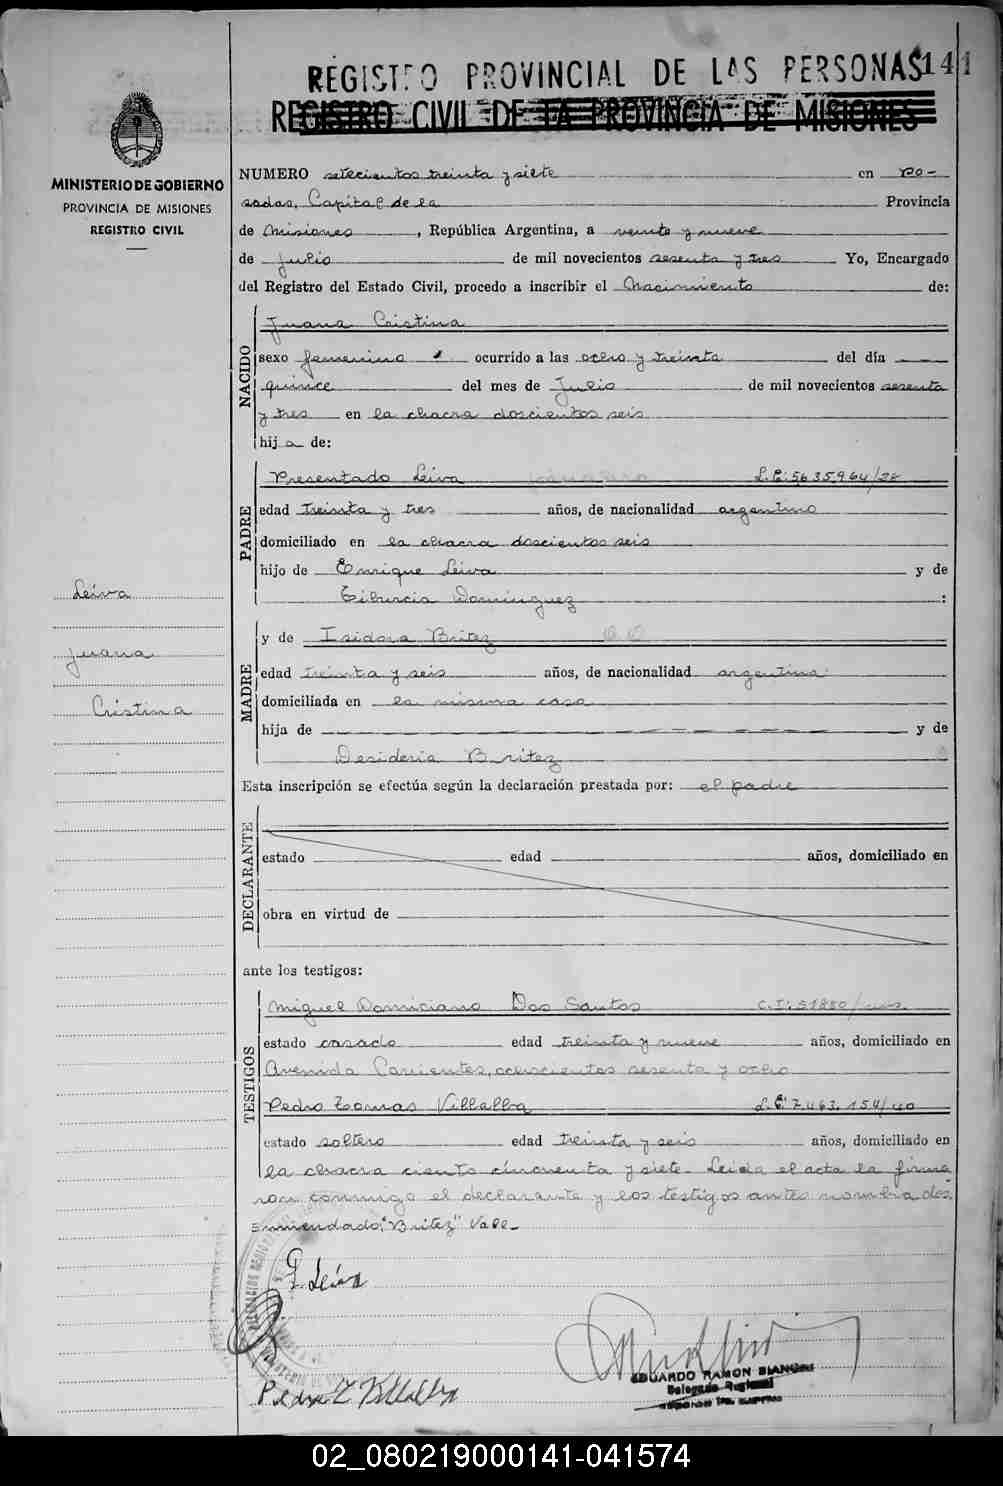 REGISTRO PROVINCIAL DE LAS PERSONAS 141
REGISTRO CIVIL DE LA PROVINCIA DE MISIONES
MINISTERIO DE GOBIERNO
PROVINCIA DE MISIONES
REGISTRO CIVIL
NUMERO setecientos treinta y siete en Po-
sadas, Capital de la Provincia
de Misiones, República Argentina, a veinte y nueve
de Julio de mil novecientos sesenta y tres Yo, Encargado
del Registro del Estado Civil, procedo a inscribir el Nacimiento de:
NACIDO
Juana Cristina
sexo femenino ocurrido a las ocho y treinta del día
quince del mes de Julio de mil novecientos sesenta
y tres en la chacra doscientos seis
hija de:
PADRE
Presentado Leiva L.E: 5635964/38
edad treinta y tres años, de nacionalidad argentino
domiciliado en la chacra doscientos seis
hijo de Enrique Leiva y de
Tiburcia Dominguez :
MADRE
y de Isidora Britez
edad treinta y seis años, de nacionalidad argentina
domiciliada en la misma casa
hija de y de
Desideria Britez
Esta inscripción se efectúa según la declaración prestada por: el padre
DECLARANTE
estado edad años, domiciliado en
obra en virtud de
ante los testigos:
TESTIGOS
Miguel Domiciano Dos Santos C.I: 51880/mis.
estado casado edad treinta y nueve años, domiciliado en
Avenida Corrientes, ochocientos sesenta y ocho
Pedro Tomas Villalba L.E: 7.463.154/40
estado soltero edad treinta y seis años, domiciliado en
la chacra ciento cincuenta y siete- Leida el acta la firma
ron conmigo el declarante y los testigos antes nombrados.
Enmendado: "Britez" Vale-
Leiva
Juana
Cristina
P. Leiva
Pedro T. Villalba
EDUARDO RAMON BIANCHI
Delegado Regional
02_080219000141-041574